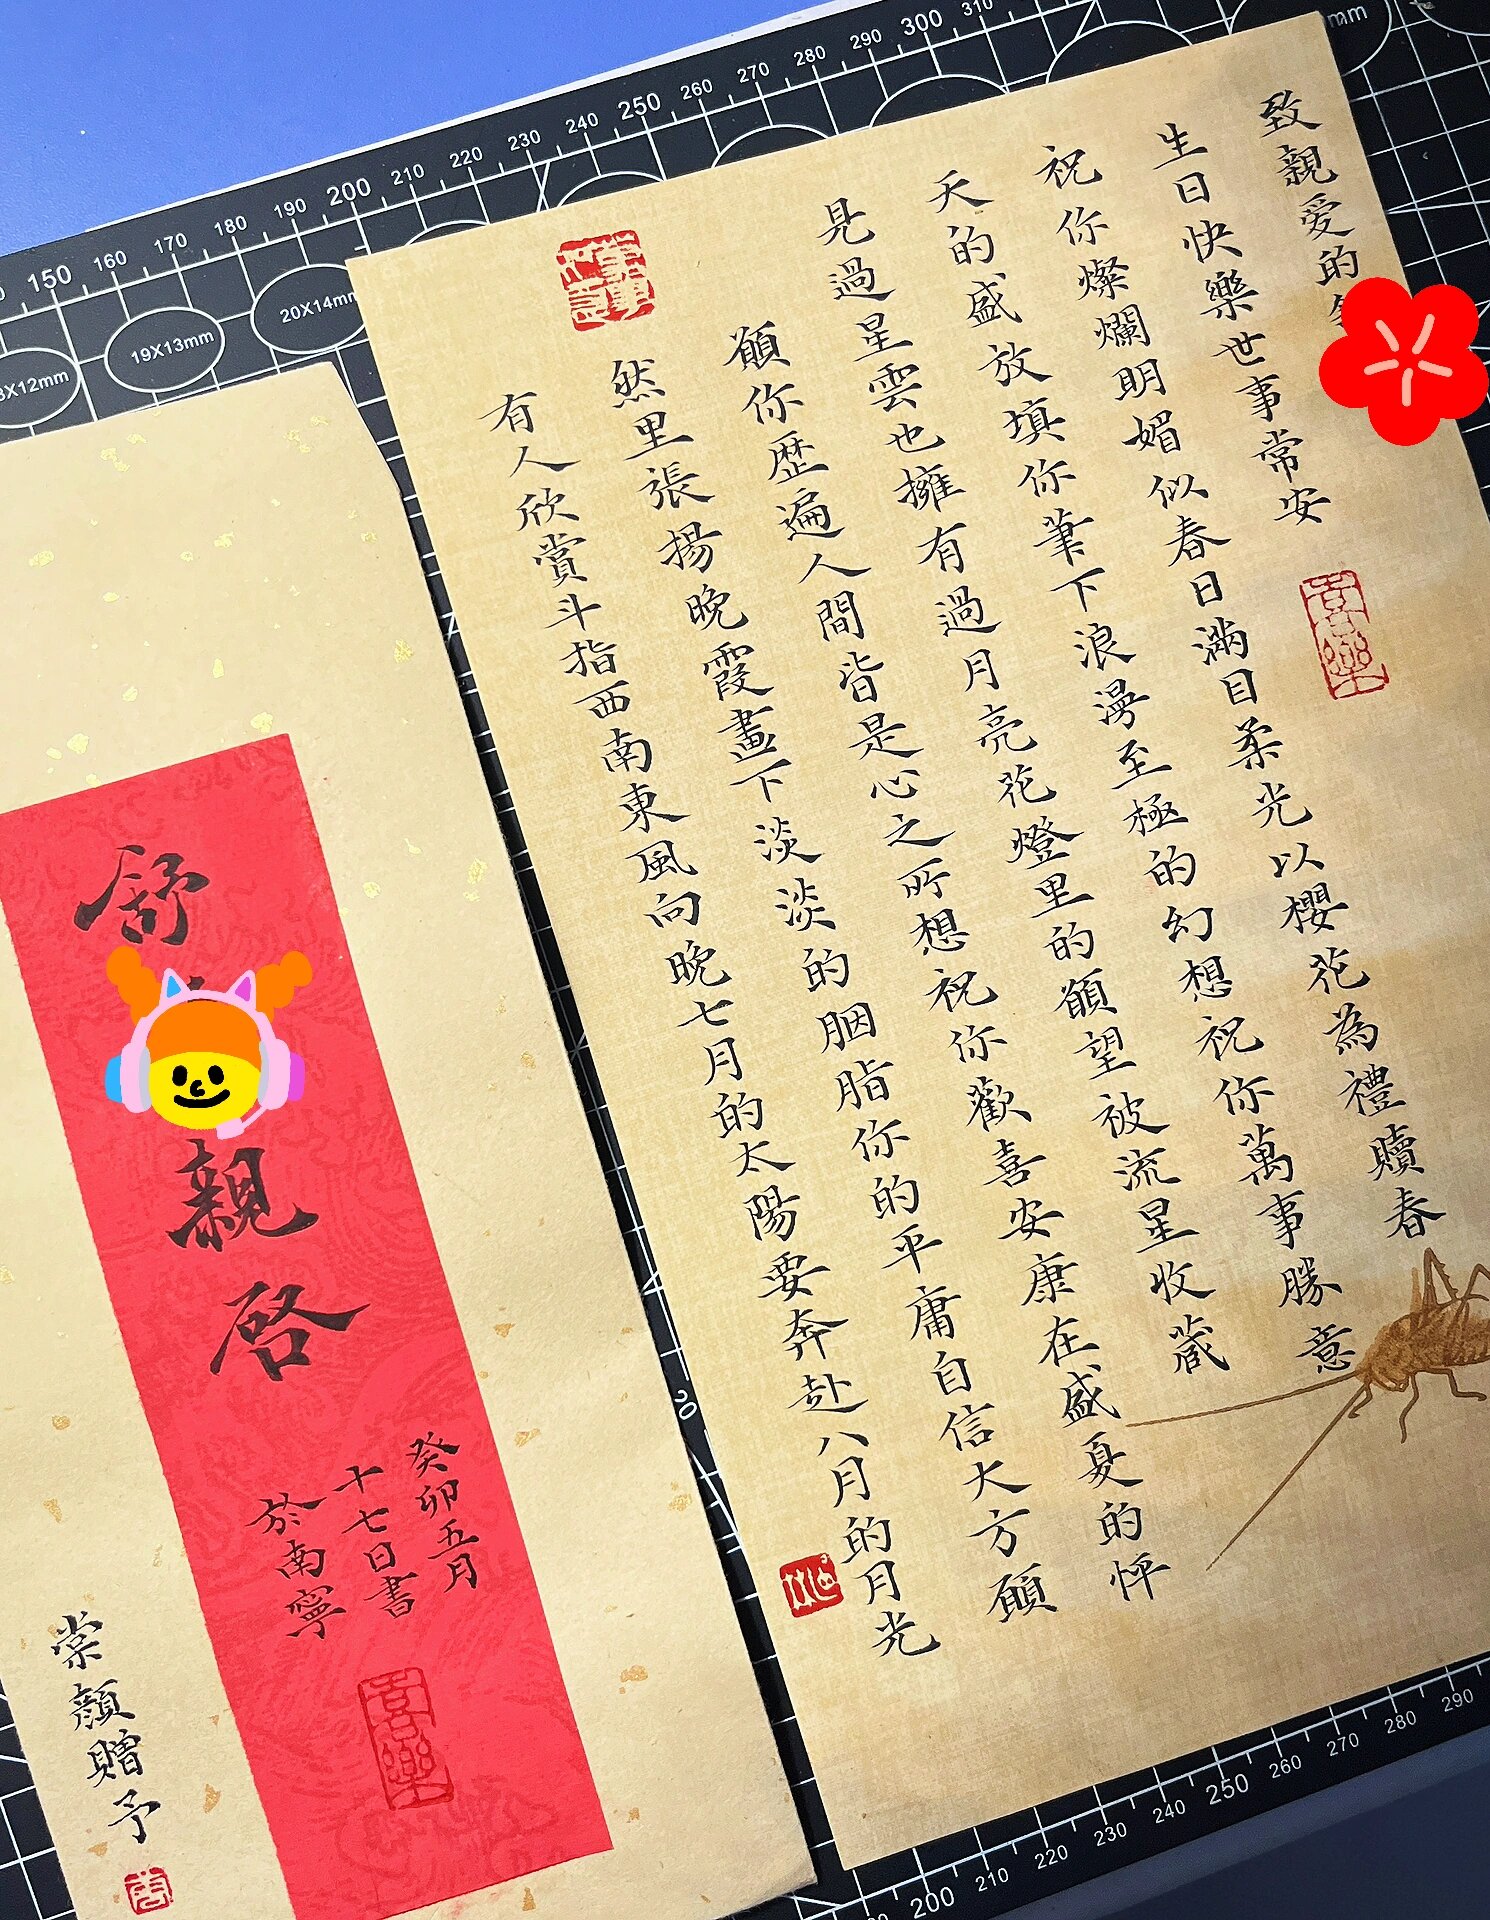 致親愛的
生日快樂世事常安
祝你燦爛明媚似春日滿目柔光以櫻花為禮贖春
天的盛放填你筆下浪漫至極的幻想祝你萬事勝意
見過星雲也擁有過月亮花燈里的願望被流星收藏
願你歷遍人間皆是心之所想祝你歡喜安康在盛夏的怦
然里張揚晚霞畫下淡淡的胭脂你的平庸自信大方願
有人欣賞斗指西南東風向晚七月的太陽要奔赴八月的月光
喜樂
舒
親啓
癸卯五月
十七日書
於南寧
喜樂
棠顏贈予
150 160 170 180 190 200 210 220 230 240 250 260 270 280 290 300 310
19X13mm
20X14mm
200 210 220 230 240 250 260 270 280 290